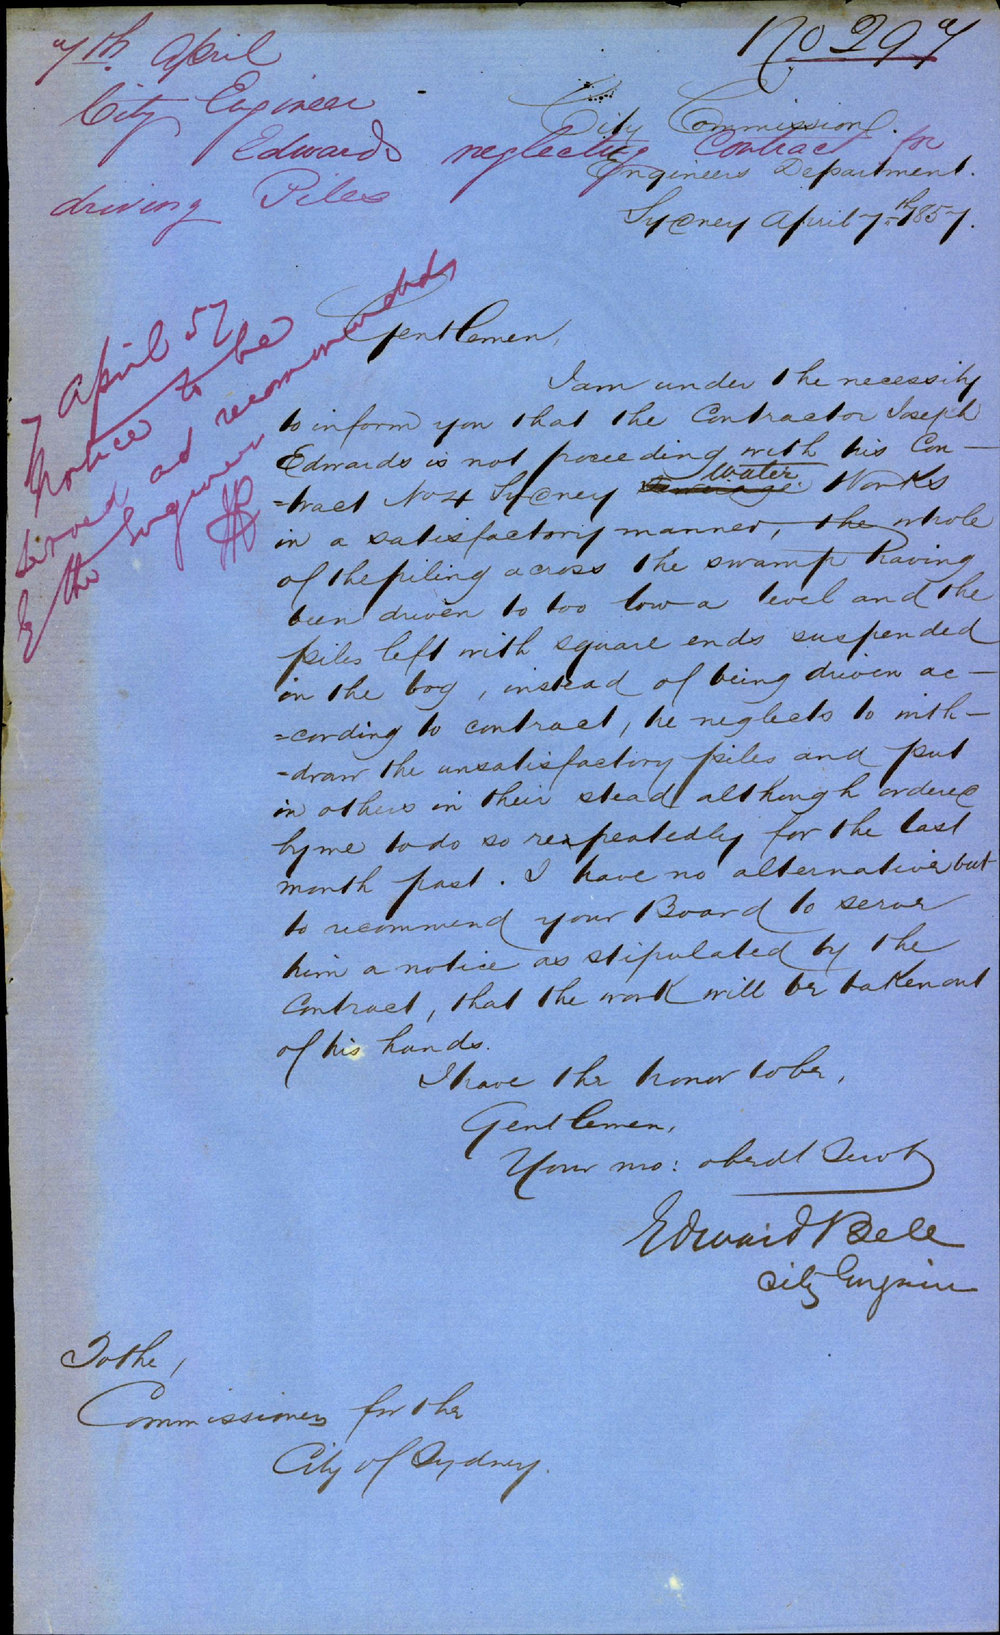 No 297
7th April
City Engineer
Edwards neglecting Contract for
driving Piles
City Commission.
Engineers Department.
Sydney April 7th 1857.
7 April 57
Notice to be
served as recommended
by the Engineer
Gentlemen,
I am under the necessity
to inform you that the Contractor Joseph
Edwards is not proceeding with his Con-
=tract No 4 Sydney Sewerage Water Works
in a satisfactory manner, the whole
of the piling across the swamp having
been driven to too low a level and the
piles left with square ends suspended
in the bog, instead of being driven ac-
=cording to contract, he neglects to with-
-draw the unsatisfactory piles and put
in others in their stead although ordered
by me to do so repeatedly for the last
month past. I have no alternative but
to recommend your Board to serve
him a notice as stipulated by the
Contract, that the work will be taken out
of his hands.
I have the honor to be,
Gentlemen,
Your mo: obedt Servt
Edward Bell
City Engineer
To the,
Commissioners for the
City of Sydney.